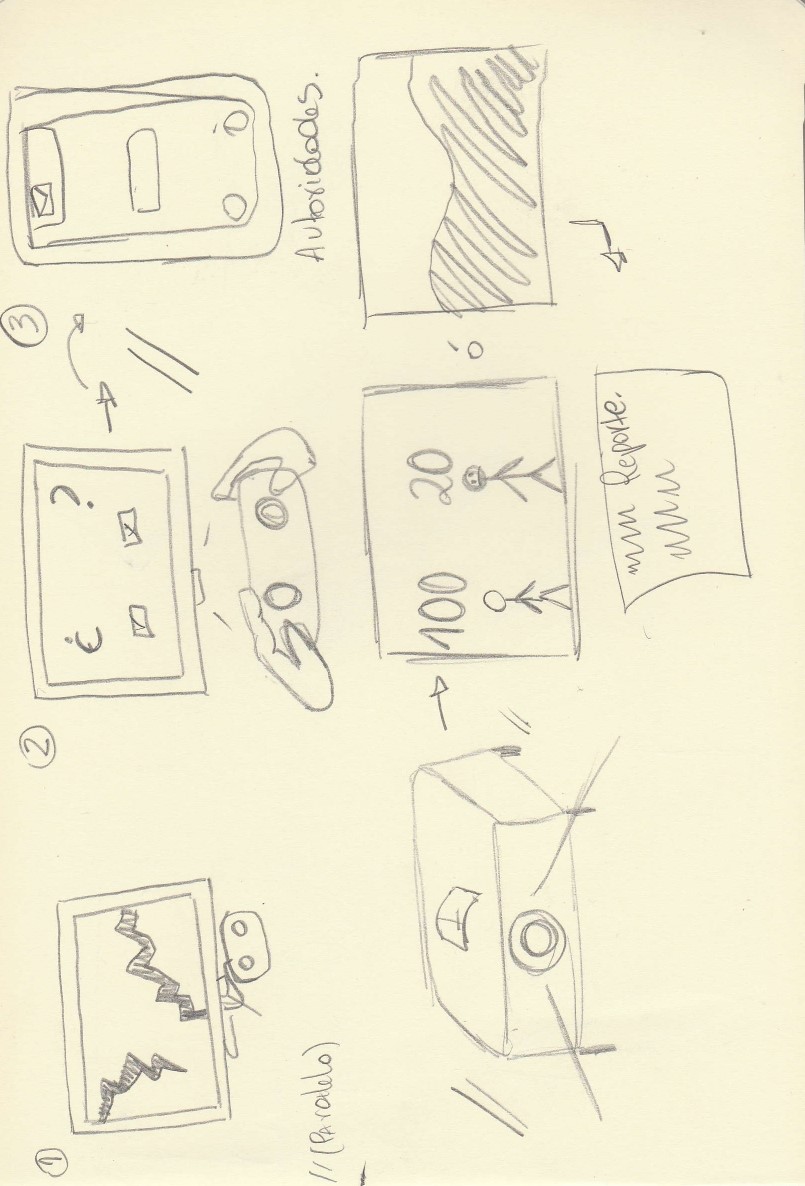 ①
②
③
¿ ?
//(PARALELO)
//
Autoridades.
//
//
100 20
ó
Reporte.